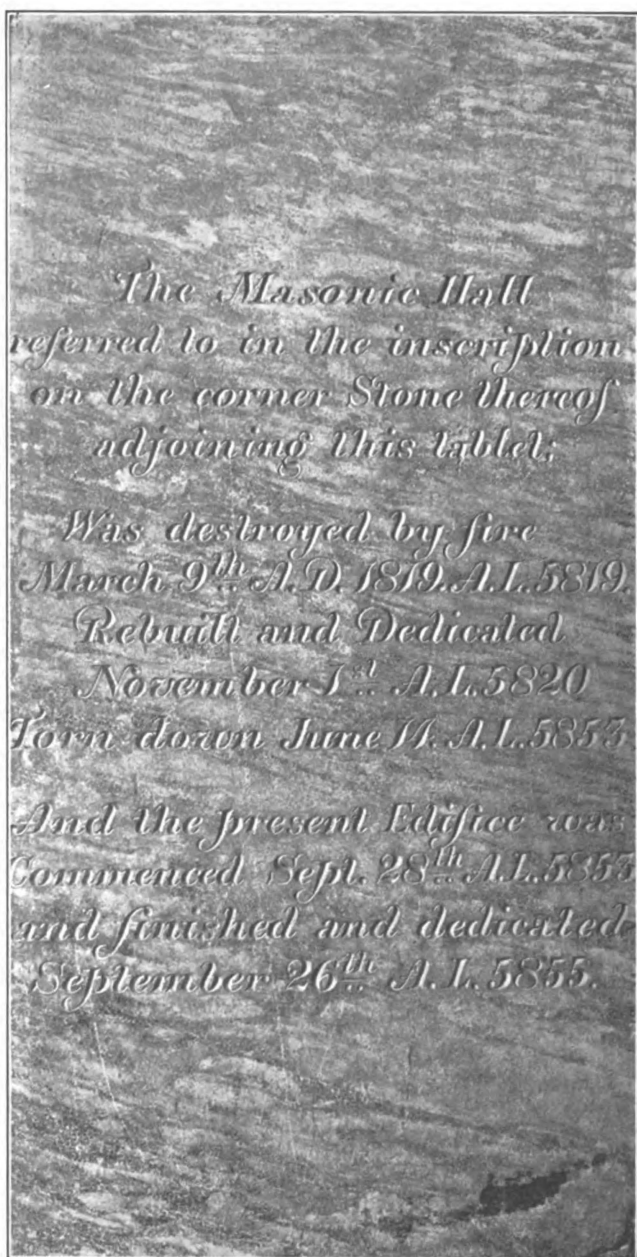 The Masonic Hall
referred to in the inscription
on the corner Stone thereof
adjoining this tablet;
Was destroyed by fire
March 9th A.D. 1819. A.L. 5819.
Rebuilt and Dedicated
November 1st A.L. 5820
Torn down June 14. A.L. 5853
And the present Edifice was
Commenced Sept. 28th A.L. 5853
and finished and dedicated
September 26th A.L. 5855.